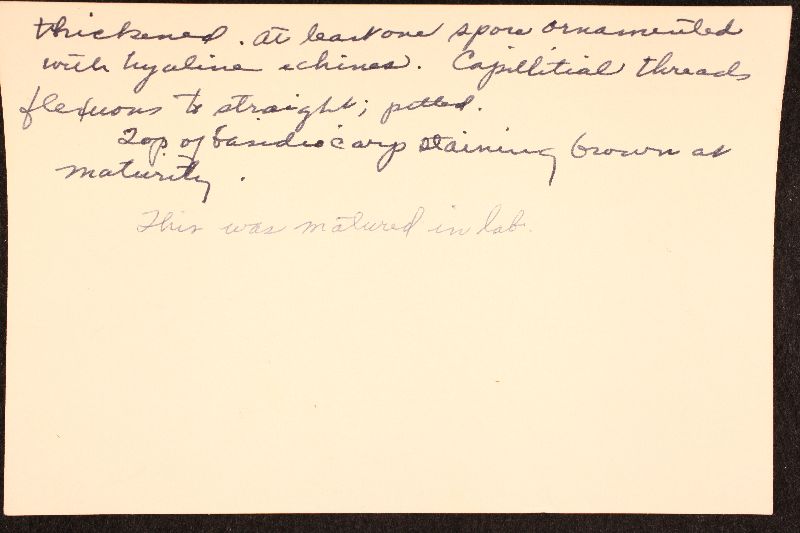 thickened. At least one spore ornamented
with hyaline echines. Capillitial threads
flexuous to straight; pitted.
Top of basidiocarp staining brown at
maturity.
This was matured in lab.